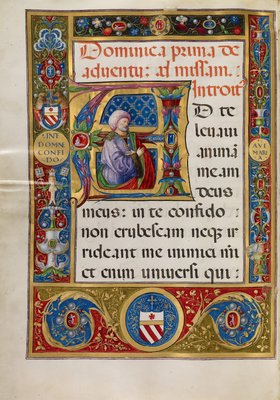 Dominica prima de
adventu: ad missam.
Introit
D te
levavi
animā
meam
deus
meus: in te confido
non erubescam neq ir
rideant me inimici mei
et enim universi qui:
IN TE
DOMINE
CONFI
DO
AVE
MARIA